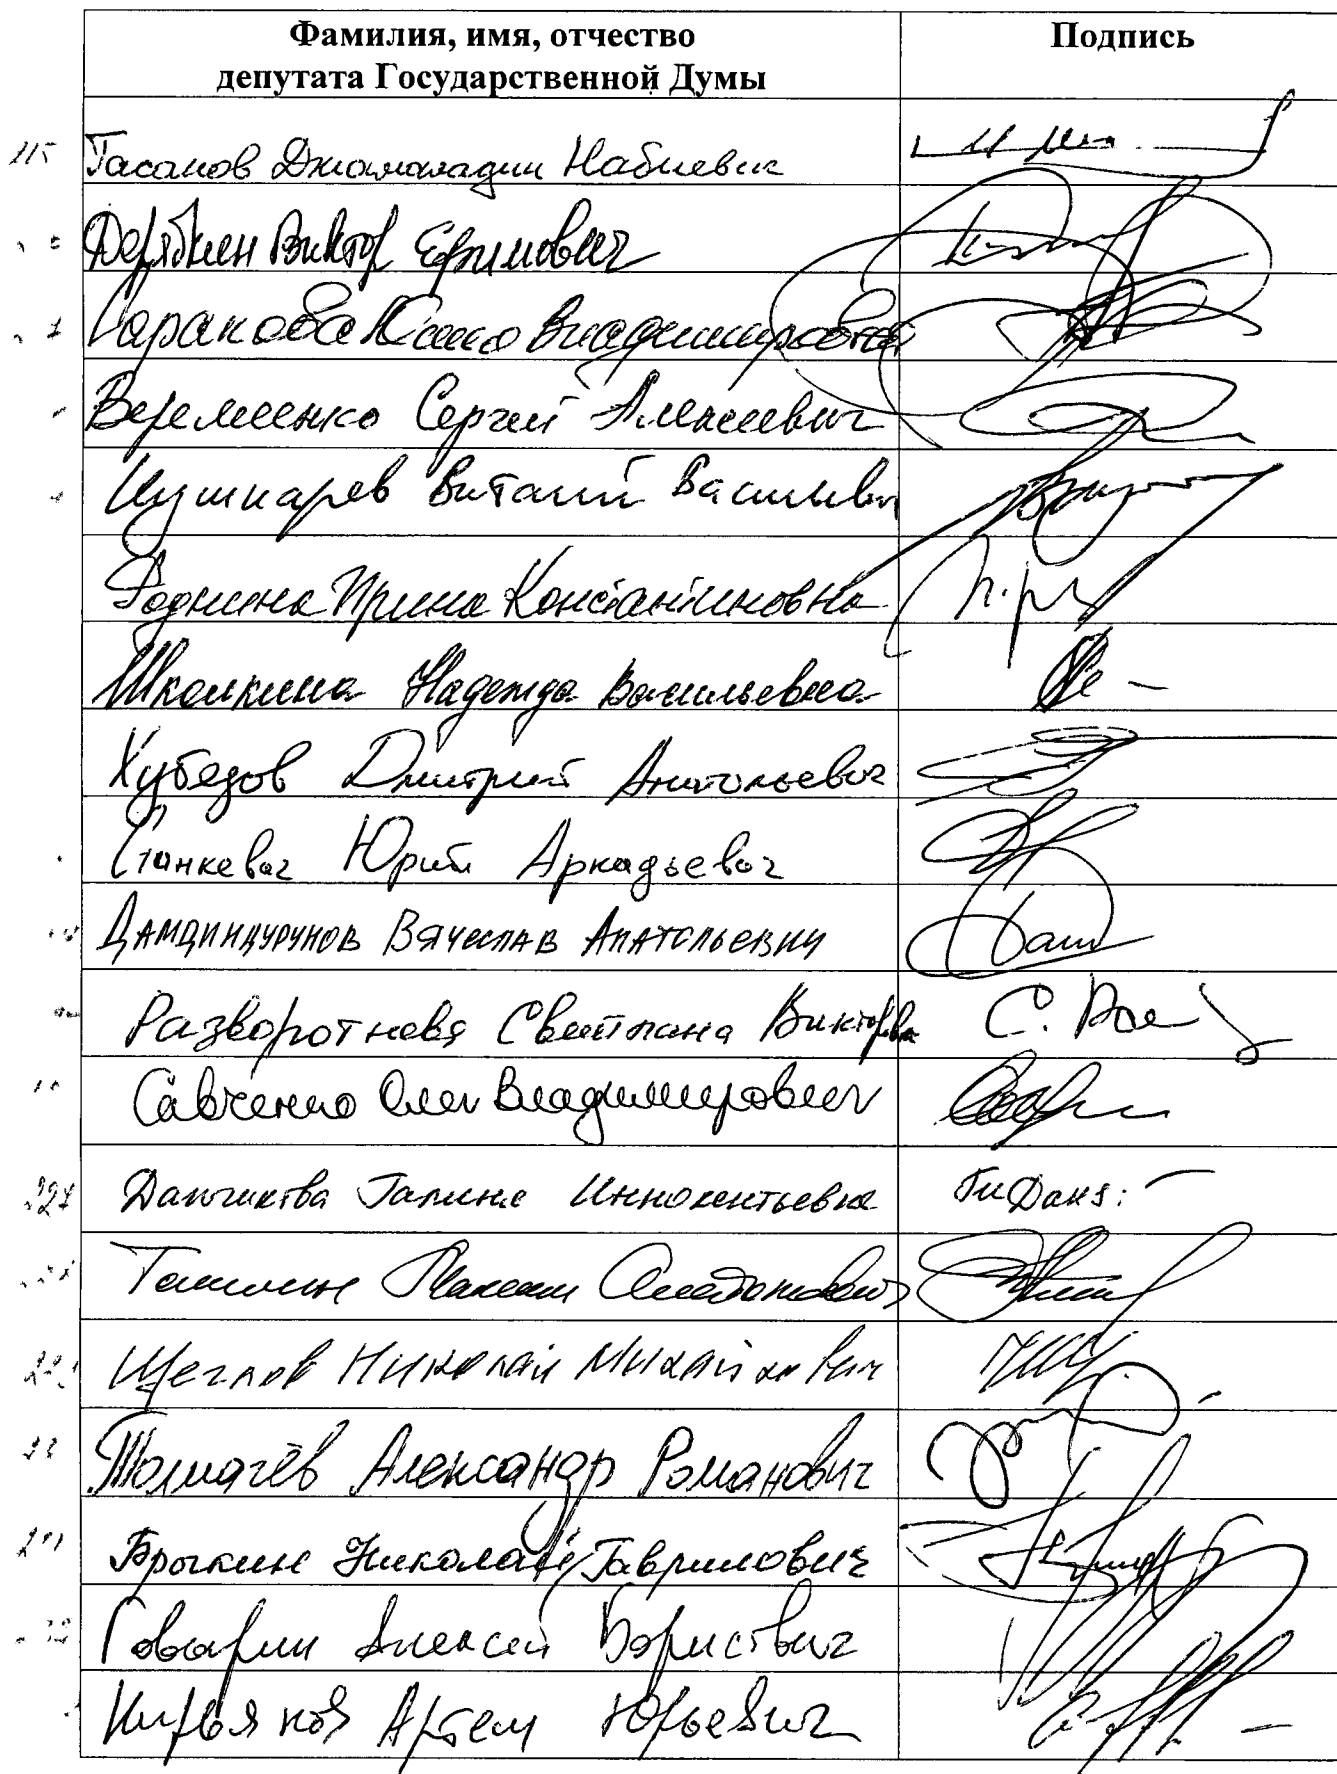 Фамилия, имя, отчество Подпись
депутата Государственной Думы
Гасанов Джамаладин Набиевич
Дерябкин Виктор Ефимович
Саранова Юлия Владимировна
Веремеенко Сергей Алексеевич
Кушнарев Виталий Васильевич
Роднина Ирина Константиновна
Школкина Надежда Васильевна
Хубезов Дмитрий Анатольевич
Станкевич Юрий Аркадьевич
Дамдинцурунов Вячеслав Анатольевич
Разворотнева Светлана Викторовна
Савченко Олег Владимирович
Данчикова Галина Иннокентьевна
Максим
Щеглов Николай Михайлович
Толмачёв Александр Романович
Брыкин Николай Гаврилович
Говырин Алексей Борисович
Кирьянов Артем Юрьевич